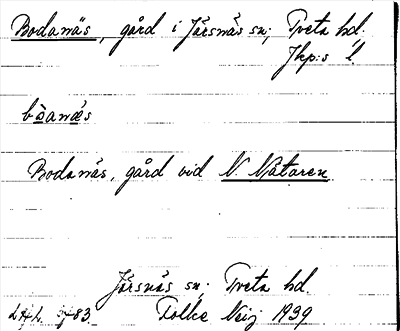 Bodanäs, gård i Järsnäs sn; Tveta hd.
Jkp:s l.
bòanæ̀s
Bodanäs, gård vid N. Nätaren
Järsnäs sn; Tveta hd.
83. Folke Neij 1939